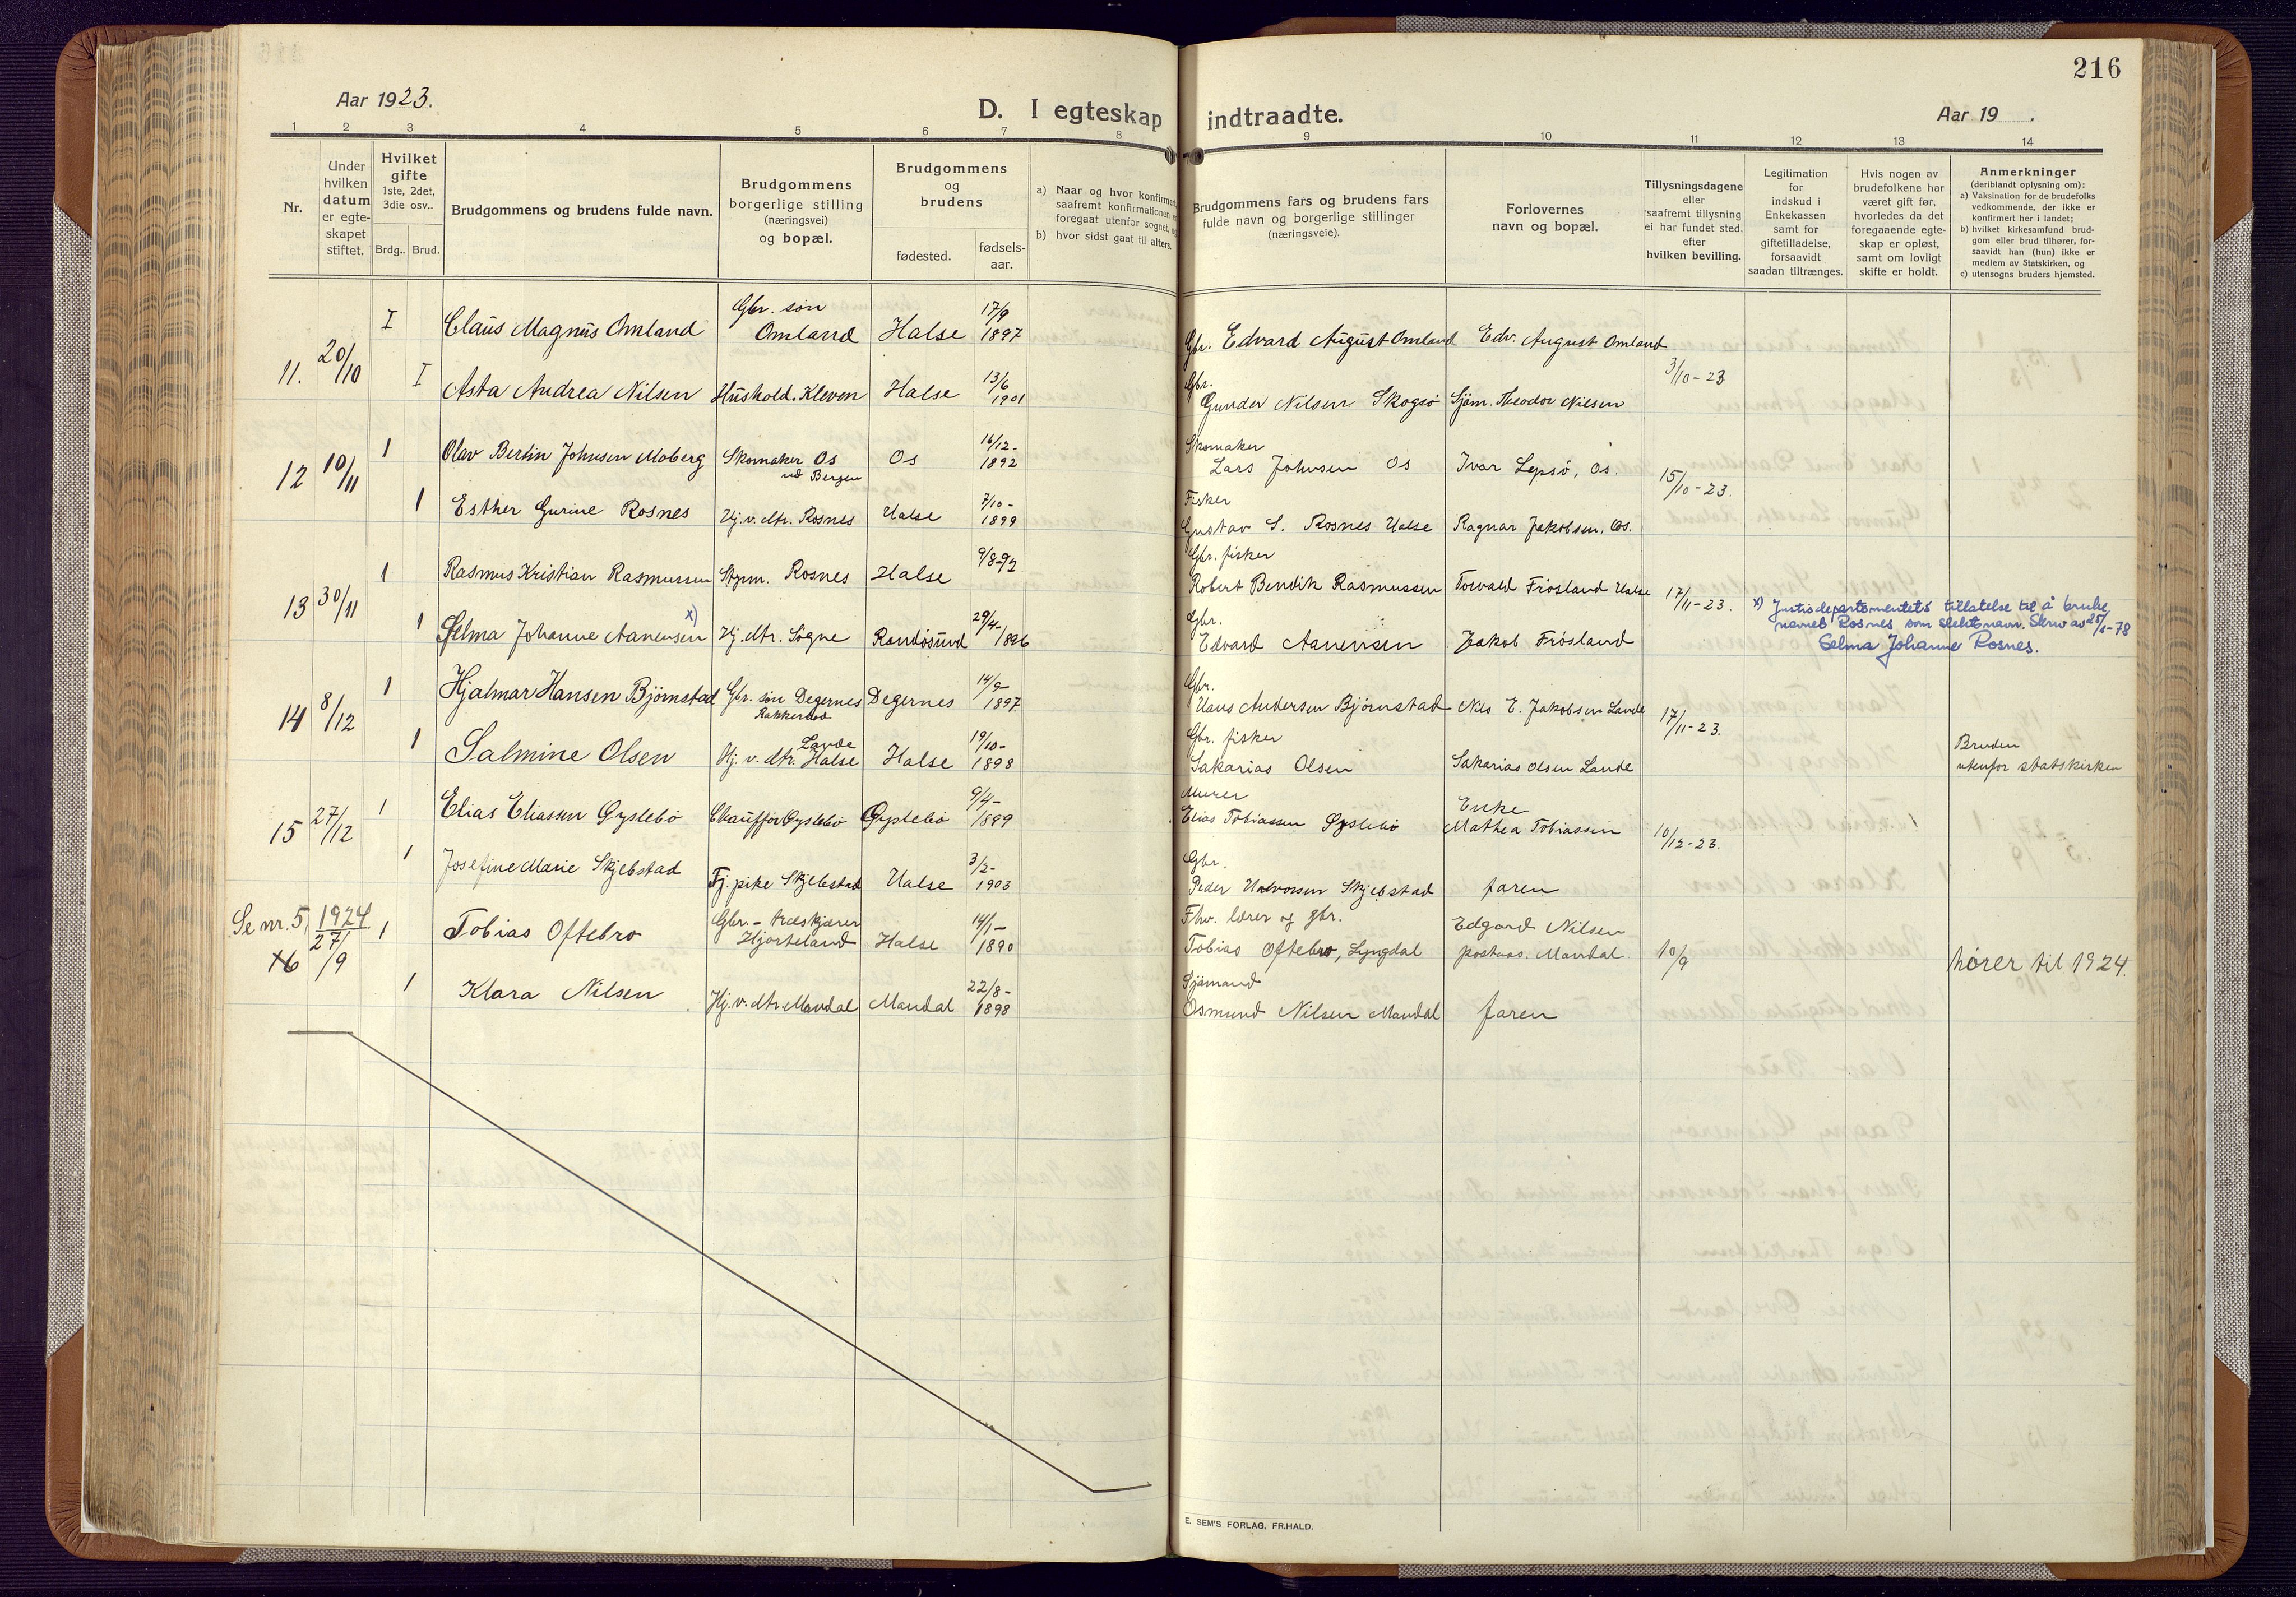 216
Aar 1923.
D. I egteskap indtraadte.
Aar 19 .
1 2 3 4 5 6 7 8 9 10 11 12 13 14
Nr.
Under
hvilken
datum
er egte-
skapet
stiftet.
Hvilket
gifte
1ste, 2det,
3die osv..
Brdg.. Brud.
Brudgommens og brudens fulde navn.
Brudgommens
borgerlige stilling
(næringsvei)
og bopæl.
Brudgommens
og
brudens
fødested.
fødsels-
aar.
a) Naar og hvor konfirmert
saafremt konfirmationen er
foregaat utenfor sognet, og
b) hvor sidst gaat til alters.
Brudgommens fars og brudens fars
fulde navn og borgerlige stillinger
(næringsveie).
Forlovernes
navn og bopæl.
Tillysningsdagene
eller
saafremt tillysning
ei har fundet sted,
efter
hvilken bevilling.
Legitimation
for
indskud i
Enkekassen
samt for
giftetilladelse,
forsaavidt
saadan tiltrænges.
Hvis nogen av
brudefolkene har
været gift før,
hvorledes da det
foregaaende egte-
skap er opløst,
samt om lovligt
skifte er holdt.
Anmerkninger
(deriblandt oplysning om):
a) Vaksination for de brudefolks
vedkommende, der ikke er
konfirmert her i landet;
b) hvilket kirkesamfund brud-
gom eller brud tilhører, for-
saavidt han (hun) ikke er
medlem av Statskirken, og
c) utensogns bruders hjemsted.
11. 20/10 I Claus Magnus Omland Gbr. søn Omland Halse 17/9 1897 Gbr. Edvard August Omland Edv. August Omland 3/10-23
I Asta Andrea Nilsen Hushold. Kleven Halse 13/6 1901 Gbr. Gunder Nilsen Skogsø Sjøm. Theodor Nilsen
12 10/11 1 Olav Bertin Johnsen Moberg Skomaker Os vd Bergen Os 16/12- 1892 Skomaker Lars Johnsen Os Ivar Lepsö, Os. 15/10-23.
1 Esther Gurine Rosnes Hj. v. Mr. Rosnes Halse 7/10- 1899 Fisker Gustav S. Rosnes Halse Ragnar Jakobsen, Os.
13 30/11 1 Rasmus Kristian Rasmussen Styrm. Rosnes Halse 9/8-92 Gbr. fisker Robert Bendik Rasmussen Torvald Frøsland Halse 17/11-23.
1 Selma Johanne Aanensen x) Hj. Mr. Søgne Randøsund 29/4- 1896 Gbr. Edvard Aanensen Jakob Frøsland
x) Justisdepartementets tillatelse til å bruke
navnet Rosnes som slektsnavn. Skriv av 25/5-78
Selma Johanne Rosnes.
14 8/12 1 Hjalmar Hansen Bjørnstad Gbr. søn Degernes Rakkestad Degernes 14/9- 1897 Gbr. Hans Andersen Bjørnstad Nils E. Jakobsen Lande 17/11-23.
1 Salmine Olsen Hj. v. Mr. Lande Halse Halse 19/10- 1898 Gbr. fisker Sakarias Olsen Sakarias Olsen Lande Bruden utenfor statskirken
15 27/12 1 Elias Eliassen Gyslebö Chauffør Gyslebö Gyslebö 9/4- 1899 Murer Elias Tobiassen Gyslebö Enke Mathea Tobiassen 10/12-23.
1 Josefine Marie Skjebstad Tj. pike Skjebstad Halse 3/2- 1903 Gbr. Peder Halvorsen Skjebstad faren
Se nr. 5, 1924
16 27/9 1 Tobias Oftebro Gbr.- træskjærer Hjorteland Halse 14/1- 1890 Fhv. lærer og gbr. Tobias Oftebro, Lyngdal Edgard Nilsen postass. Mandal. 10/9 hører til 1924.
1 Klara Nilsen Hj. v. Mr. Mandal Mandal 22/8- 1898 Sjømand Osmund Nilsen Mandal faren
E. SEM'S FORLAG, FR.HALD.